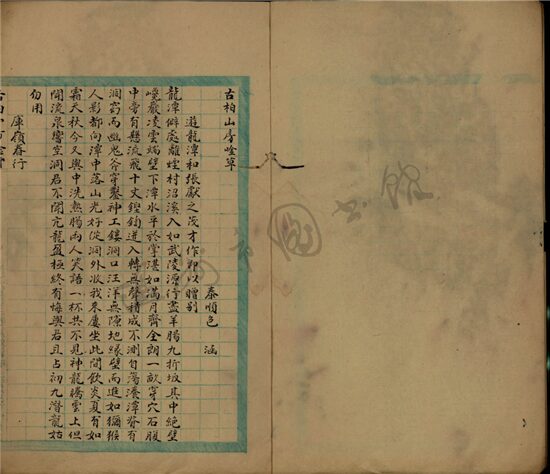 古柏山房唫草
泰順 包 涵
遊龍潭和張獻之茂才作即以贈別
龍潭僻處離煙村沿溪入如武陵源行盡羊腸九折坂其中絕壁
巉巖凌雲端壁下潭水平於掌湛如滿月齊全朗一畝穿穴石腹
中旁有懸流飛十丈鏗鍧迸入轉無聲積成不測自蕩漾潭脊有
洞窈而幽鬼斧穿鑿神工鏤洞口汪洋無隙地緣壁而進如獼猴
人影都向潭中落山光好從洞外收我來屢坐此間飲炎夏有如
霜天秋今又與中洗熱腸兩人笑語一杯共不見神龍矯雲上但
聞流泉響空洞君不聞亢龍盈極終有悔與君且占初九潛龍姑
勿用
庫嶺春行